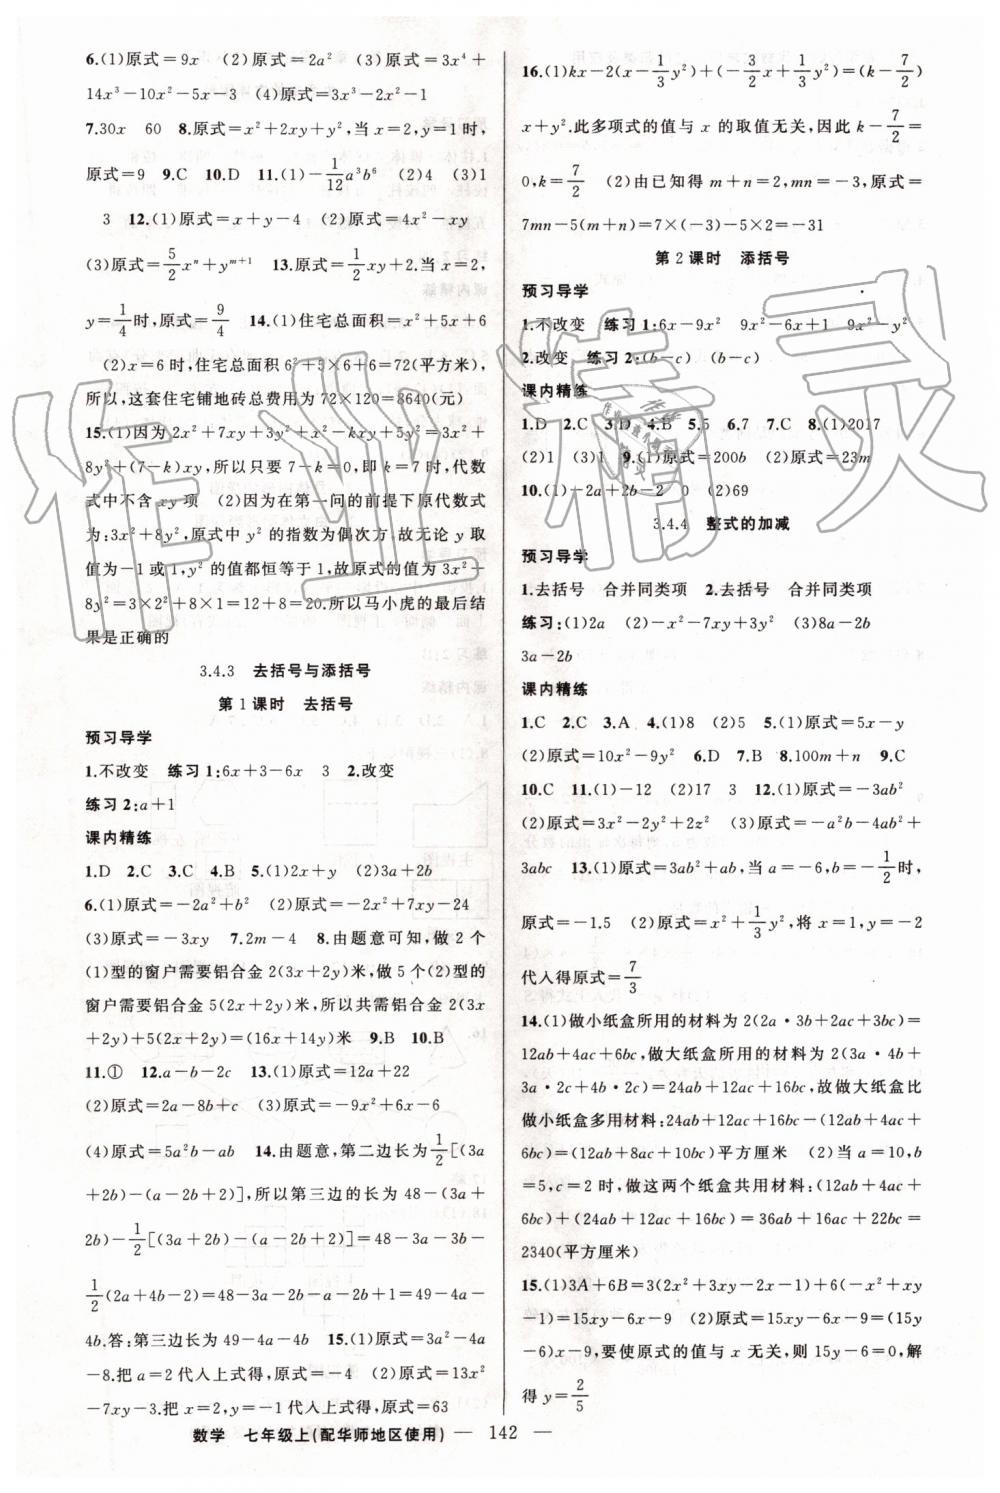 6.(1)原式＝9x　(2)原式＝2a²　(3)原式＝3x⁴＋
14x³－10x²－5x－3　(4)原式＝3x³－2x²－1
7.30x　60　8.原式＝x²＋2xy＋y²,当 x＝2,y＝1时,
原式＝9　9.C　10.D　11.(1)－1/12a³b⁶　(2)4　(3)1
3　12.(1)原式＝x＋y－4　(2)原式＝4x²－xy
(3)原式＝5/2xⁿ－yᵐ⁺¹　13.原式＝1/2xy＋x².当 x＝2,
y＝1/4时,原式＝9/4　14.(1)住宅总面积＝x²＋5x＋6
(2)x＝6时,住宅总面积 6²＋5×6＋6＝72(平方米),
所以,这套住宅铺地砖总费用为 72×120＝8640(元)
15.(1)因为 2x²＋7xy＋3y²＋x²－kxy＋5y²＝3x²＋
8y²＋(7－k)xy,所以只要 7－k＝0,即 k＝7时,代数
式中不含 xy 项　(2)因为在第一问的前提下原代数式
为:3x²＋8y²,原式中 y²的指数为偶次方,故无论 y取
值为－1或1,y²的值都恒等于1,故原式的值为 3x²＋
8y²＝3×2²＋8×1＝12＋8＝20.所以马小虎的最后结
果是正确的
3.4.3　去括号与添括号
第1课时　去括号
预习导学
1.不改变　练习1:6x＋3－6x　3　2.改变
练习2:a＋1
课内精练
1.D　2.C　3.C　4.B　5.(1)2x＋y　(2)3a＋2b
6.(1)原式＝－2a²＋b²　(2)原式＝－2x²＋7xy－24
(3)原式＝－3xy　7.2m－4　8.由题意可知,做2个
(1)型的窗户需要铝合金 2(3x＋2y)米,做5个(2)型的
窗户需要铝合金 5(2x＋2y)米,所以共需铝合金 2(3x
＋2y)＋5(2x＋2y)＝(16x＋14y)米　9.B　10.B
11.①　12.a－b－2c　13.(1)原式＝12a＋22
(2)原式＝2a－8b＋c　(3)原式＝－9x²＋6x－6
(4)原式＝5a²b－ab　14.由题意,第二边长为1/2[(3a
＋2b)－(a－2b＋2)],所以第三边的长为 48－(3a＋
2b)－1/2[(3a＋2b)－(a－2b＋2)]＝48－3a－3b－
1/2(2a＋4b－2)＝48－3a－2b－a－2b＋1＝49－4a－
4b.答:第三边长为 49－4a－4b　15.(1)原式＝3a²－4a
－8.把 a＝2代入上式得,原式＝－4　(2)原式＝13x²
－7xy－3.把 x＝－2,y＝－1代入上式得,原式＝63
16.(1)kx－2(x－1/3y²)＋(－3/2x＋1/3y²)＝(k－7/2)
x＋y².此多项式的值与 x 的取值无关,因此 k－7/2＝
0,k＝7/2　(2)由已知得 m＋n＝2,mn＝－3,原式＝
7mn－5(m＋n)＝7×(－3)－5×2＝－31
第2课时　添括号
预习导学
1.不改变　练习1:6x－9x²　9x²－6x＋1　9x²－y²
2.改变　练习2:(b－c)　(b－c)
课内精练
1.D　2.C　3.D　4.B　5.5　6.7　7.C　8.(1)2017
(2)1　(3)1　9.(1)原式＝200b　(2)原式＝23m
10.(1)－2a＋2b－2　0　(2)69
3.4.4　整式的加减
预习导学
1.去括号　合并同类项　2.去括号　合并同类项
练习:(1)2a　(2)－x²－7xy＋3y²　(3)8a－2b
3a－2b
课内精练
1.C　2.C　3.A　4.(1)8　(2)5　5.(1)原式＝5x－y
(2)原式＝10x²－9y²　6.D　7.B　8.100m＋n　9.C
10.C　11.(1)－12　(2)17　3　12.(1)原式＝－3ab²
(2)原式＝3x²－2y²＋2z²　(3)原式＝－a²b－4ab²＋
3abc　13.(1)原式＝3ab²＋ab,当 a＝－6,b＝－1/2时,
原式＝－1.5　(2)原式＝x²＋1/3y²,将 x＝1,y＝－2
代入得原式＝7/3
14.(1)做小纸盒所用的材料为 2(2a·3b＋2ac＋3bc)＝
12ab＋4ac＋6bc,做大纸盒所用的材料为 2(3a·4b＋
3a·2c＋4b·2c)＝24ab＋12ac＋16bc,故做大纸盒比
做小纸盒多用材料:24ab＋12ac＋16bc－(12ab＋4ac＋
6bc)＝(12ab＋8ac＋10bc)平方厘米　(2)当 a＝10,b
＝5,c＝2时,做这两个纸盒共用材料:(12ab＋4ac＋
6bc)＋(24ab＋12ac＋16bc)＝36ab＋16ac＋22bc＝
2340(平方厘米)
15.(1)3A＋6B＝3(2x²＋3xy－2x－1)＋6(－x²＋xy
－1)＝15xy－6x－9　(2)原式＝15xy－6x－9＝(15y
－6)x－9,要使原式的值与 x 无关,则 15y－6＝0,解
得 y＝2/5
数学　七年级上(配华师地区使用)　— 142 —
作业精灵